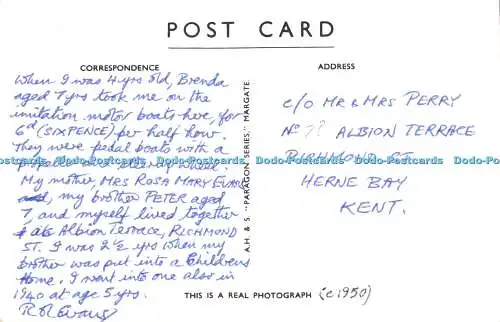 POST CARD
CORRESPONDENCE
When I was 4 yrs old, Brenda
aged 7 yrs took me on the
imitation motor boats here, for
6d (SIXPENCE) per half hour.
They were pedal boats with a
My mother, MRS ROSA MARY EVANS
my brother PETER aged
7, and myself lived together
Albion Terrace, RICHMOND
ST. I was 2½ yrs when my
brother was put into a Childrens
Home. I went into one also in
1940 at age 5 yrs.
R R Evans
A.H. & S. "PARAGON SERIES," MARGATE
ADDRESS
c/o MR & MRS PERRY
No ALBION TERRACE
RICHMOND ST.
HERNE BAY
KENT.
THIS IS A REAL PHOTOGRAPH (c 1950)
Dodo-Postcards Dodo-Postcards Dodo-Postcards Dodo-Postcards